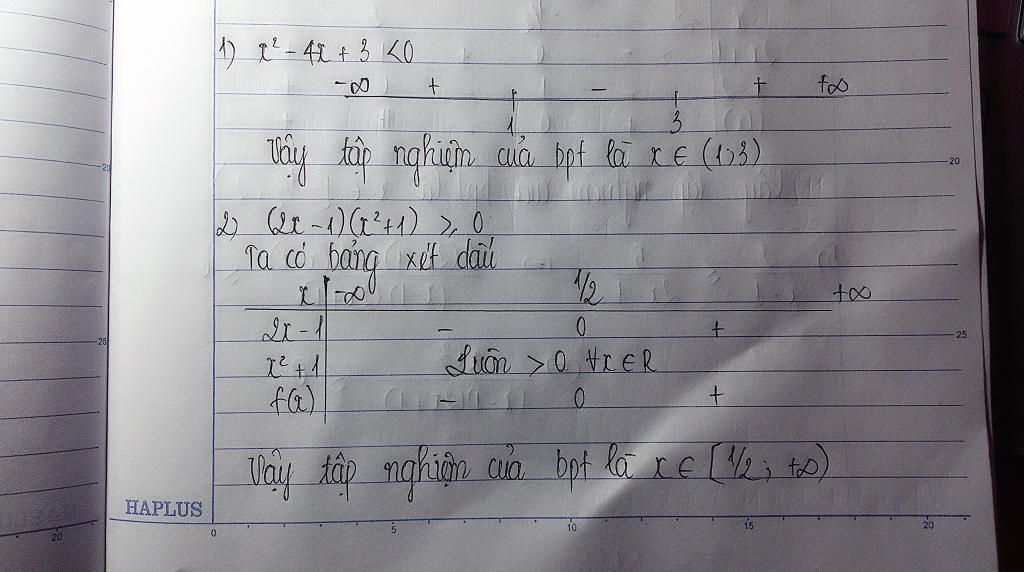 1) x² - 4x + 3 < 0
-∞ + - + +∞
1 3
Vậy tập nghiệm của bpt là x ∈ (1;3)
20
20
2) (2x - 1)(x² + 1) ≥ 0
Ta có bảng xét dấu
x -∞ 1/2 +∞
2x - 1 - 0 +
25
25
x² + 1 Luôn > 0 ∀x ∈ R
f(x) - 0 +
Vậy tập nghiệm của bpt là x ∈ [1/2; +∞)
HAPLUS
20 0 5 10 15 20